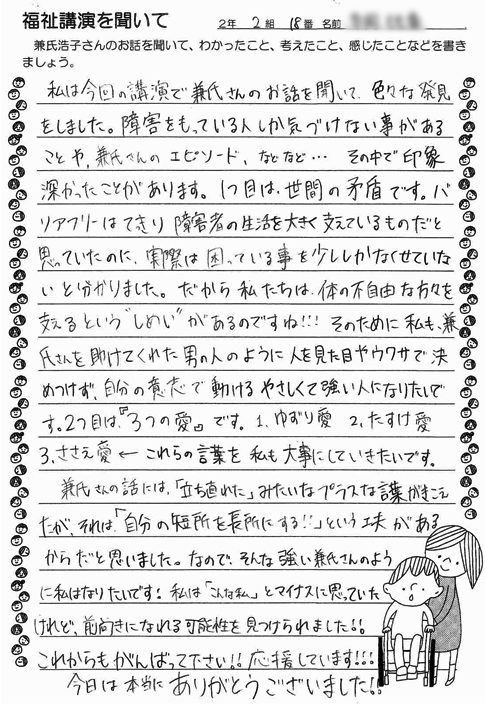 福祉講演を聞いて 2年 2組 18番 名前
兼氏浩子さんのお話を聞いて、わかったこと、考えたこと、感じたことなどを書き
ましょう。
私は今回の講演で兼氏さんのお話を聞いて、色々な発見
をしました。障害をもっている人しか気づけない事がある
ことや、兼氏さんのエピソード、などなど… その中で印象
深かったことがあります。1つ目は、世間の矛盾です。バ
リアフリーはてきり障害者の生活を大きく支えているものだと
思っていたのに、実際は困っている事を少ししかなくせていな
いと分かりました。だから私たちは、体の不自由な方々を
支えるという"しめい"があるのですね!!! そのために私も、兼
氏さんを助けてくれた男の人のように人を見た目やウワサで決
めつけず、自分の意志で動けるやさしくて強い人になりたいで
す。2つ目は、『3つの愛』です。1、ゆずり愛 2、たすけ愛
3、ささえ愛 ← これらの言葉を私も大事にしていきたいです。
兼氏さんの話には、「立ち直れた」みたいなプラスな言葉がきこえ
たが、それは、「自分の短所を長所にする!!」という工夫がある
からだと思いました。なので、そんな強い兼氏さんのよう
に私はなりたいです! 私は「こんな私」とマイナスに思っていた
けれど、前向きになれる可能性を見つけられました!!
これからもがんばって下さい!! 応援しています!!!
今日は本当にありがとうございました!!